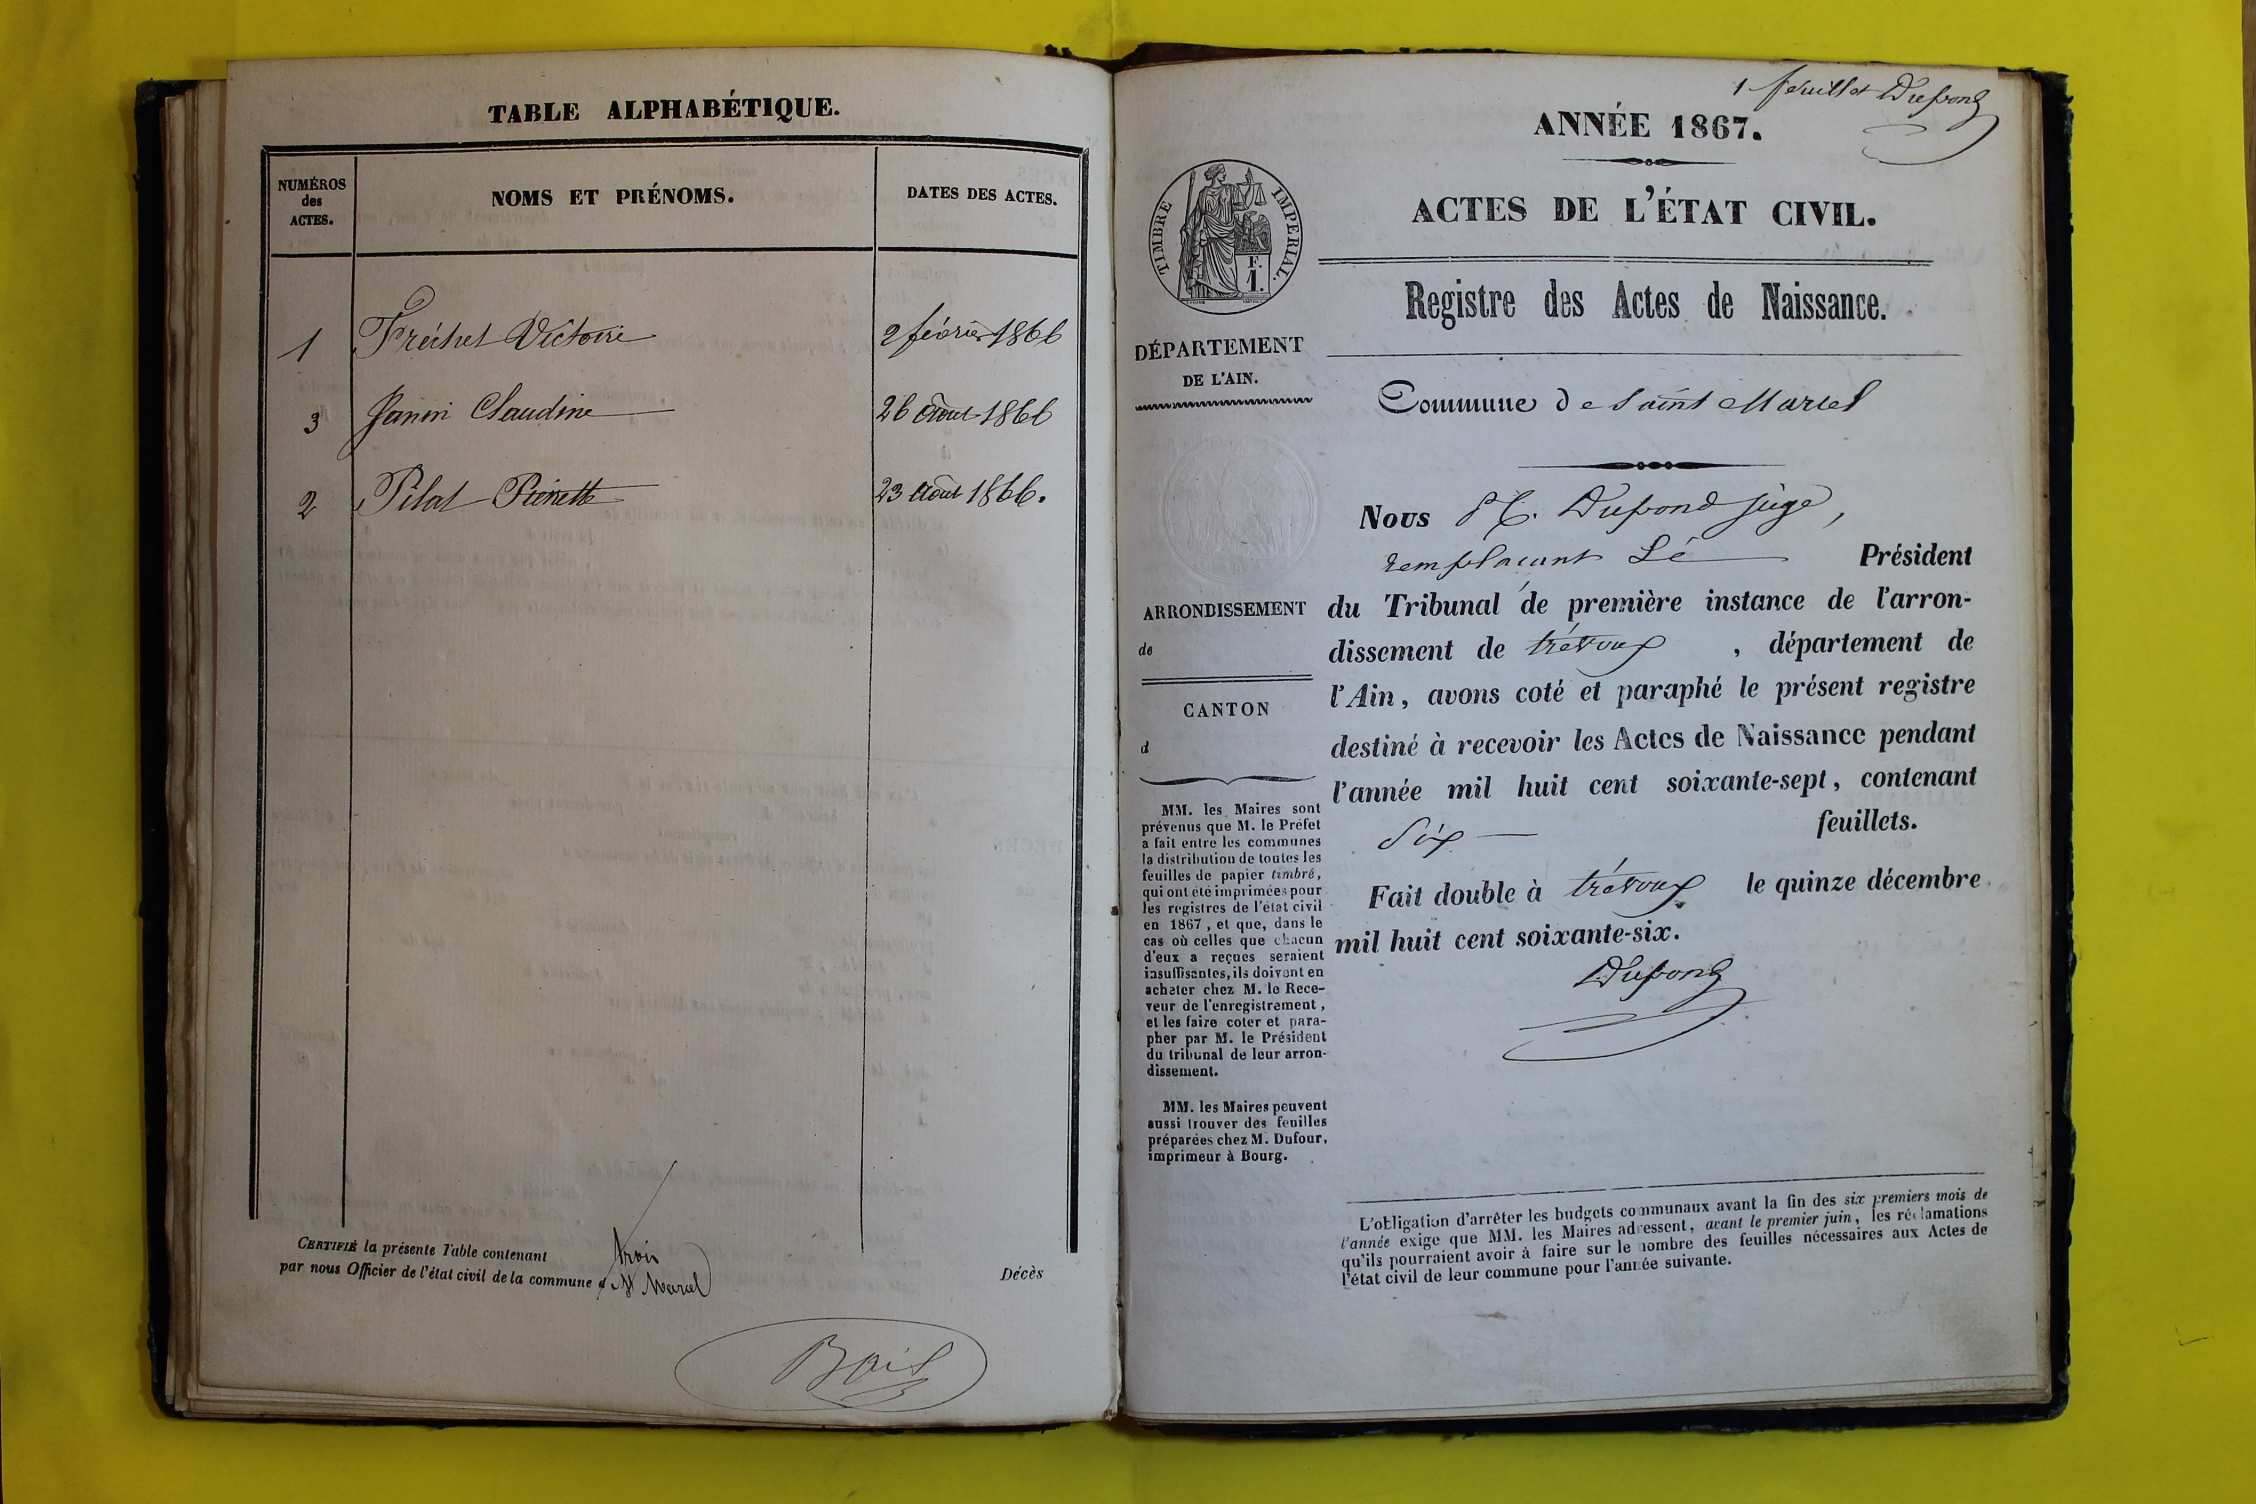 TABLE ALPHABÉTIQUE.
NUMÉROS
des
ACTES.
NOMS ET PRÉNOMS.
DATES DES ACTES.
1 Fréchet Victoire 2 février 1866
3 Janin Claudine 26 août 1866
2 Pilat Pierrette 23 août 1866.
CERTIFIÉ la présente Table contenant trois
par nous Officier de l'état civil de la commune d St Marcel
Décès
1 feuillet Dupond
ANNÉE 1867.
TIMBRE IMPERIAL.
F.
1.
ACTES DE L'ÉTAT CIVIL.
Registre des Actes de Naissance.
DÉPARTEMENT
DE L'AIN.
Commune de Saint Marcel
Nous Dupond juge,
remplaçant Lé Président
ARRONDISSEMENT
de
du Tribunal de première instance de l'arron-
dissement de trévoux , département de
CANTON
d
l'Ain, avons coté et paraphé le présent registre
destiné à recevoir les Actes de Naissance pendant
l'année mil huit cent soixante-sept, contenant
Six feuillets.
Fait double à trévoux le quinze décembre
mil huit cent soixante-six.
Dupond
MM. les Maires sont
prévenus que M. le Préfet
a fait entre les communes
la distribution de toutes les
feuilles de papier timbré,
qui ont été imprimées pour
les registres de l'état civil
en 1867, et que, dans le
cas où celles que chacun
d'eux a reçues seraient
insuffisantes, ils doivent en
acheter chez M. le Rece-
veur de l'enregistrement,
et les faire coter et para-
pher par M. le Président
du tribunal de leur arron-
dissement.
MM. les Maires peuvent
aussi trouver des feuilles
préparées chez M. Dufour,
imprimeur à Bourg.
L'obligation d'arrêter les budgets communaux avant la fin des six premiers mois de
l'année exige que MM. les Maires adressent, avant le premier juin, les réclamations
qu'ils pourraient avoir à faire sur le nombre des feuilles nécessaires aux Actes de
l'état civil de leur commune pour l'année suivante.